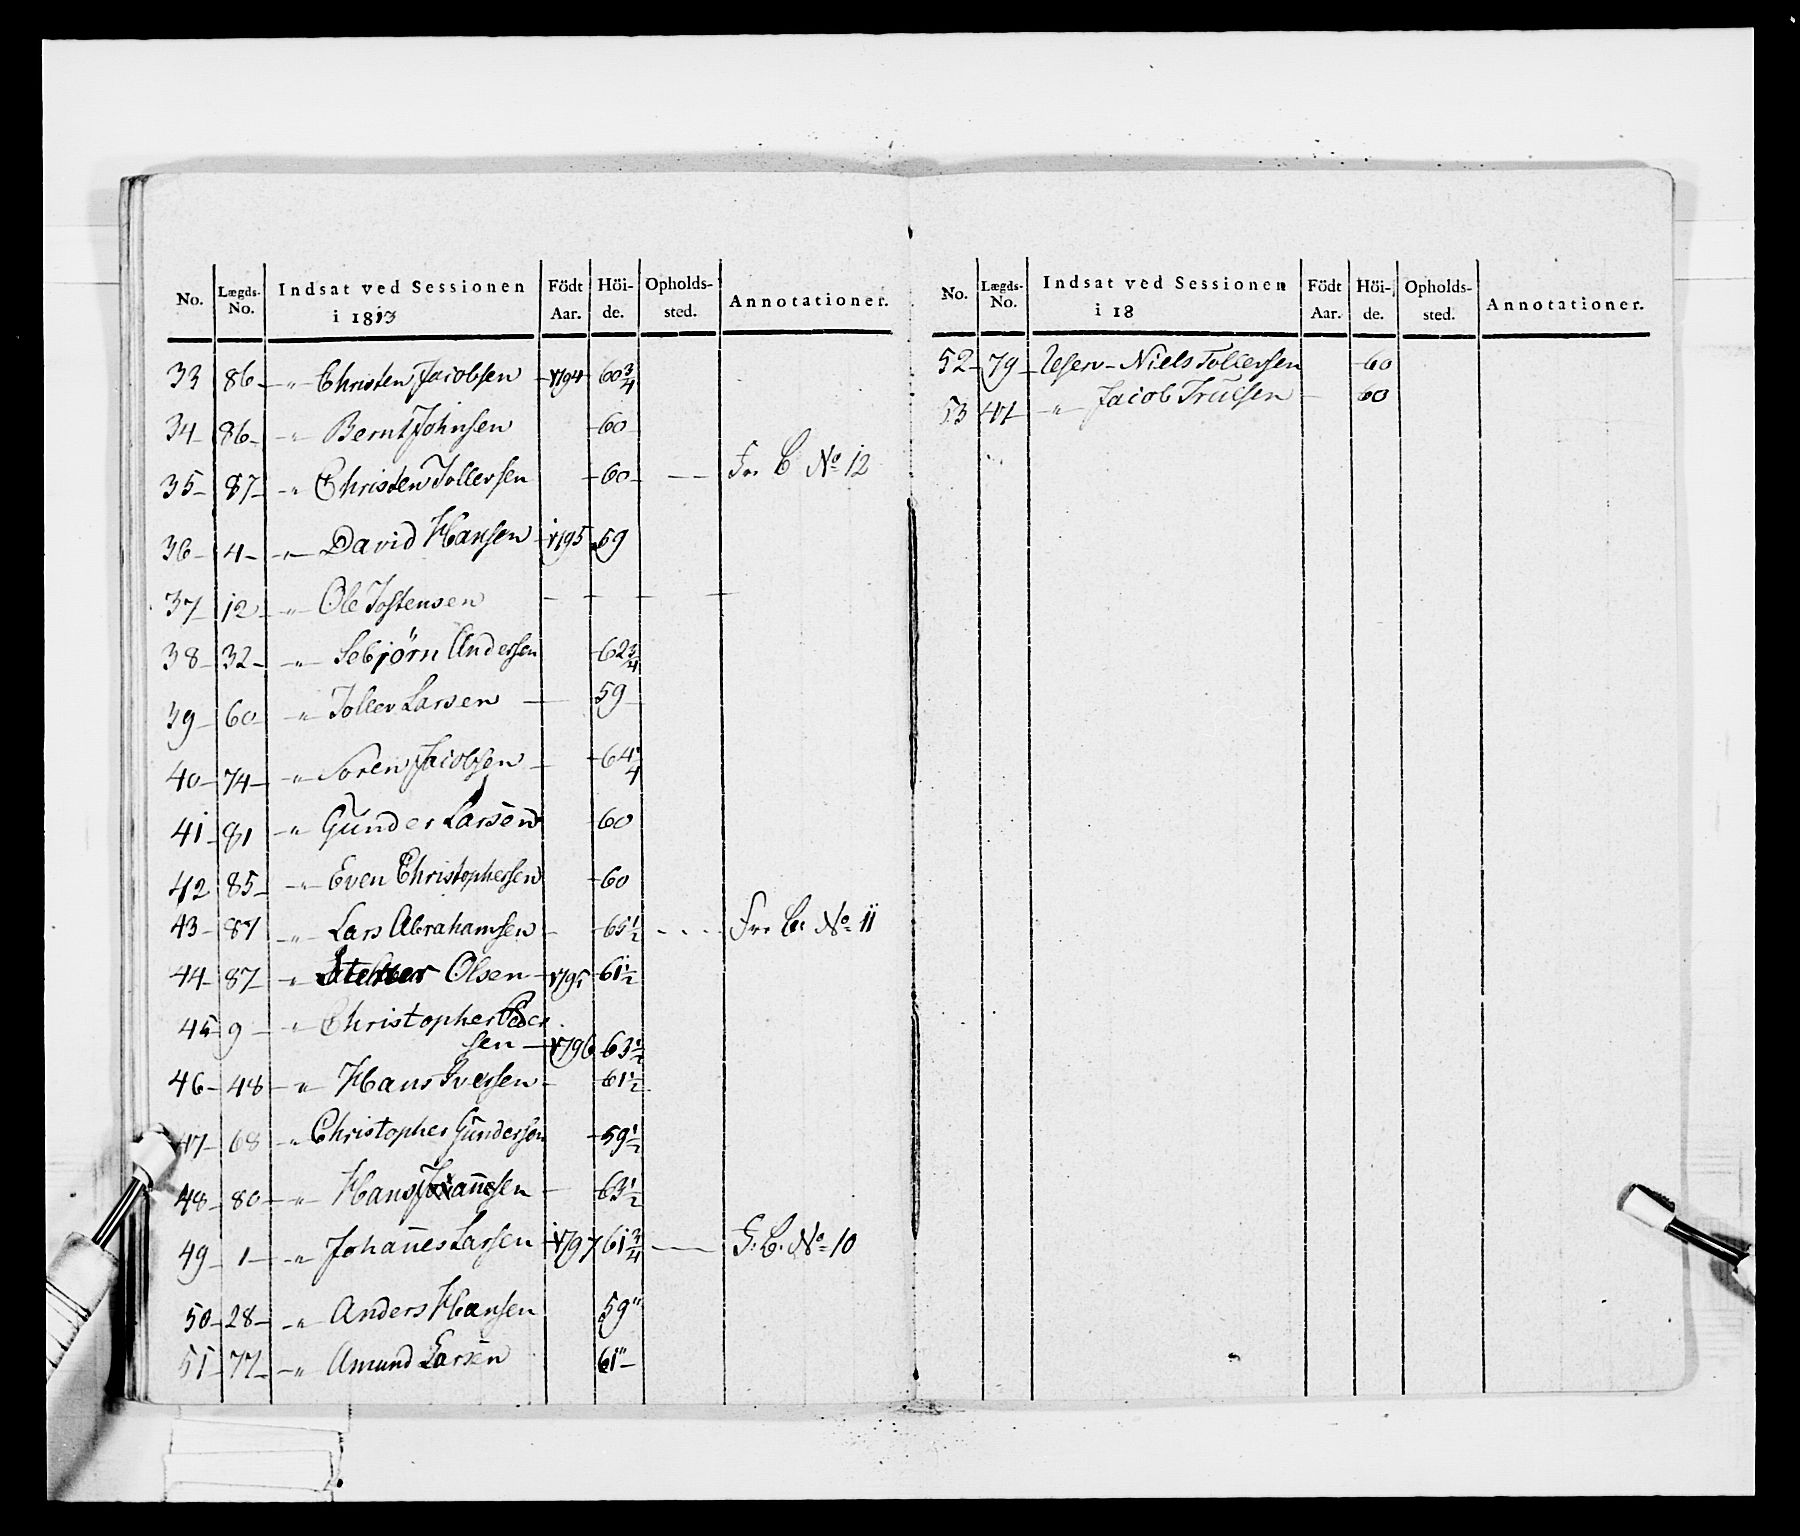 No. Lægds-No. Indsat ved Sessionen i 1813 Födt Aar. Höi-de. Opholds-sted. Annotationer.
33 86 " Christen Jacobsen 1794 60 3/4
34 86 " Bernt Johnsen 60
35 87 " Christen Tollevsen 60 — F. C No 12
36 4 " David Hansen 1795 59
37 12 " Ole Tostensen — — — —
38 32 " Sebjörn Andersen 62 3/4
39 60 " Tollev Larsen 59
40 74 " Soren Jacobsen 64 1/4
41 81 " Gunder Larsen 60
42 85 " Even Christophersen 60
43 87 " Lars Abrahamsen 65 1/2 — C. No 11
44 87 " Olsen 1795 61 1/2
45 9 " Christopher Peder
sen 1796 63 1/2
46 48 " Hans Iversen 61 1/2
47 68 " Christopher Gundersen 59 1/2
48 80 " Hans 63 1/2
49 1 " Johanes Larsen 1797 61 3/4 — C. No 10
50 28 " Anders Hansen 59"
51 77 " Amund Larsen 61"
No. Lægds-No. Indsat ved Sessionen i 18 Födt Aar. Höi-de. Opholds-sted. Annotationer.
52 79 Niels Tollefsen 60
53 41 " Jacob Trulsen 60